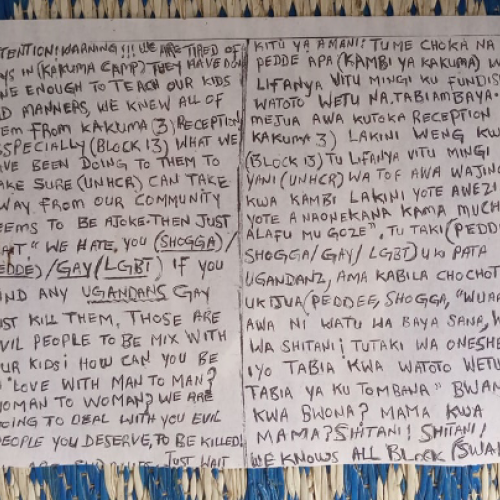 TENTION! WARNING!!! WE ARE TIRED OF
YS IN (KAKUMA CAMP) THEY HAVE DON
NE ENOUGH TO TEACH OUR KIDS
D MANNERS, WE KNEW ALL OF
EM FROM KAKUMA (3) RECEPTION
SPECIALLY (BLOCK 13) WHAT WE
AVE BEEN DOING TO THEM TO
AKE SURE (UNHCR) CAN TAKE
WAY FROM OUR COMMUNITY
EEMS TO BE A JOKE. THEN JUST
"WE HATE, YOU (SHOGGA)/
EDDE)/GAY (LGBT) IF YOU
ND ANY UGANDANS GAY
UST KILL THEM, THOSE ARE
VIL PEOPLE TO BE MIX WITH
UR KIDS! HOW CAN YOU BE
"LOVE WITH MAN TO MAN?
WOMAN TO WOMAN? WE ARE
OING TO DEAL WITH YOU EVIL
EOPLE YOU DESERVE, TO BE KILLED!
JUST WAIT
KITU YA AMANI! TUME CHOKA NA
PEDDE APA (KAMBI YA KAKUMA) W
LIFANYA VITU MINGI KU FUNDIS
WATOTO WETU NA. TABIAMBAYA.
MEJUA AWA KUTOKA RECEPTION
KAKUMA 3) LAKINI WENG KU
(BLOCK 13) TU LIFANYA VITU MINGI
YANI (UNHCR) WA TOF AWA WAJING
KWA KAMBI LAKINI YOTE AWEZI
YOTE A NAONEKANA KAMA MUCH
ALAFU MU GOZE". TU TAKI (PEDD
SHOGGA/GAY/LGBT) UKI PATA
UGANDANZ, AMA KABILA CHOCHOT
UKIJUA (PEDDEE, SHOGGA, "WUA
AWA NI WATU WA BAYA SANA, W
WA SHITANI! TUTAKI WA ONESHE
IYO TABIA KWA WATOTO WETU
TABIA YA KU TOMBANA" BWAN
KWA BWONA? MAMA KWA
MAMA? SHITANI! SHITANI!
WE KNOWS ALL BLOCK (SWA